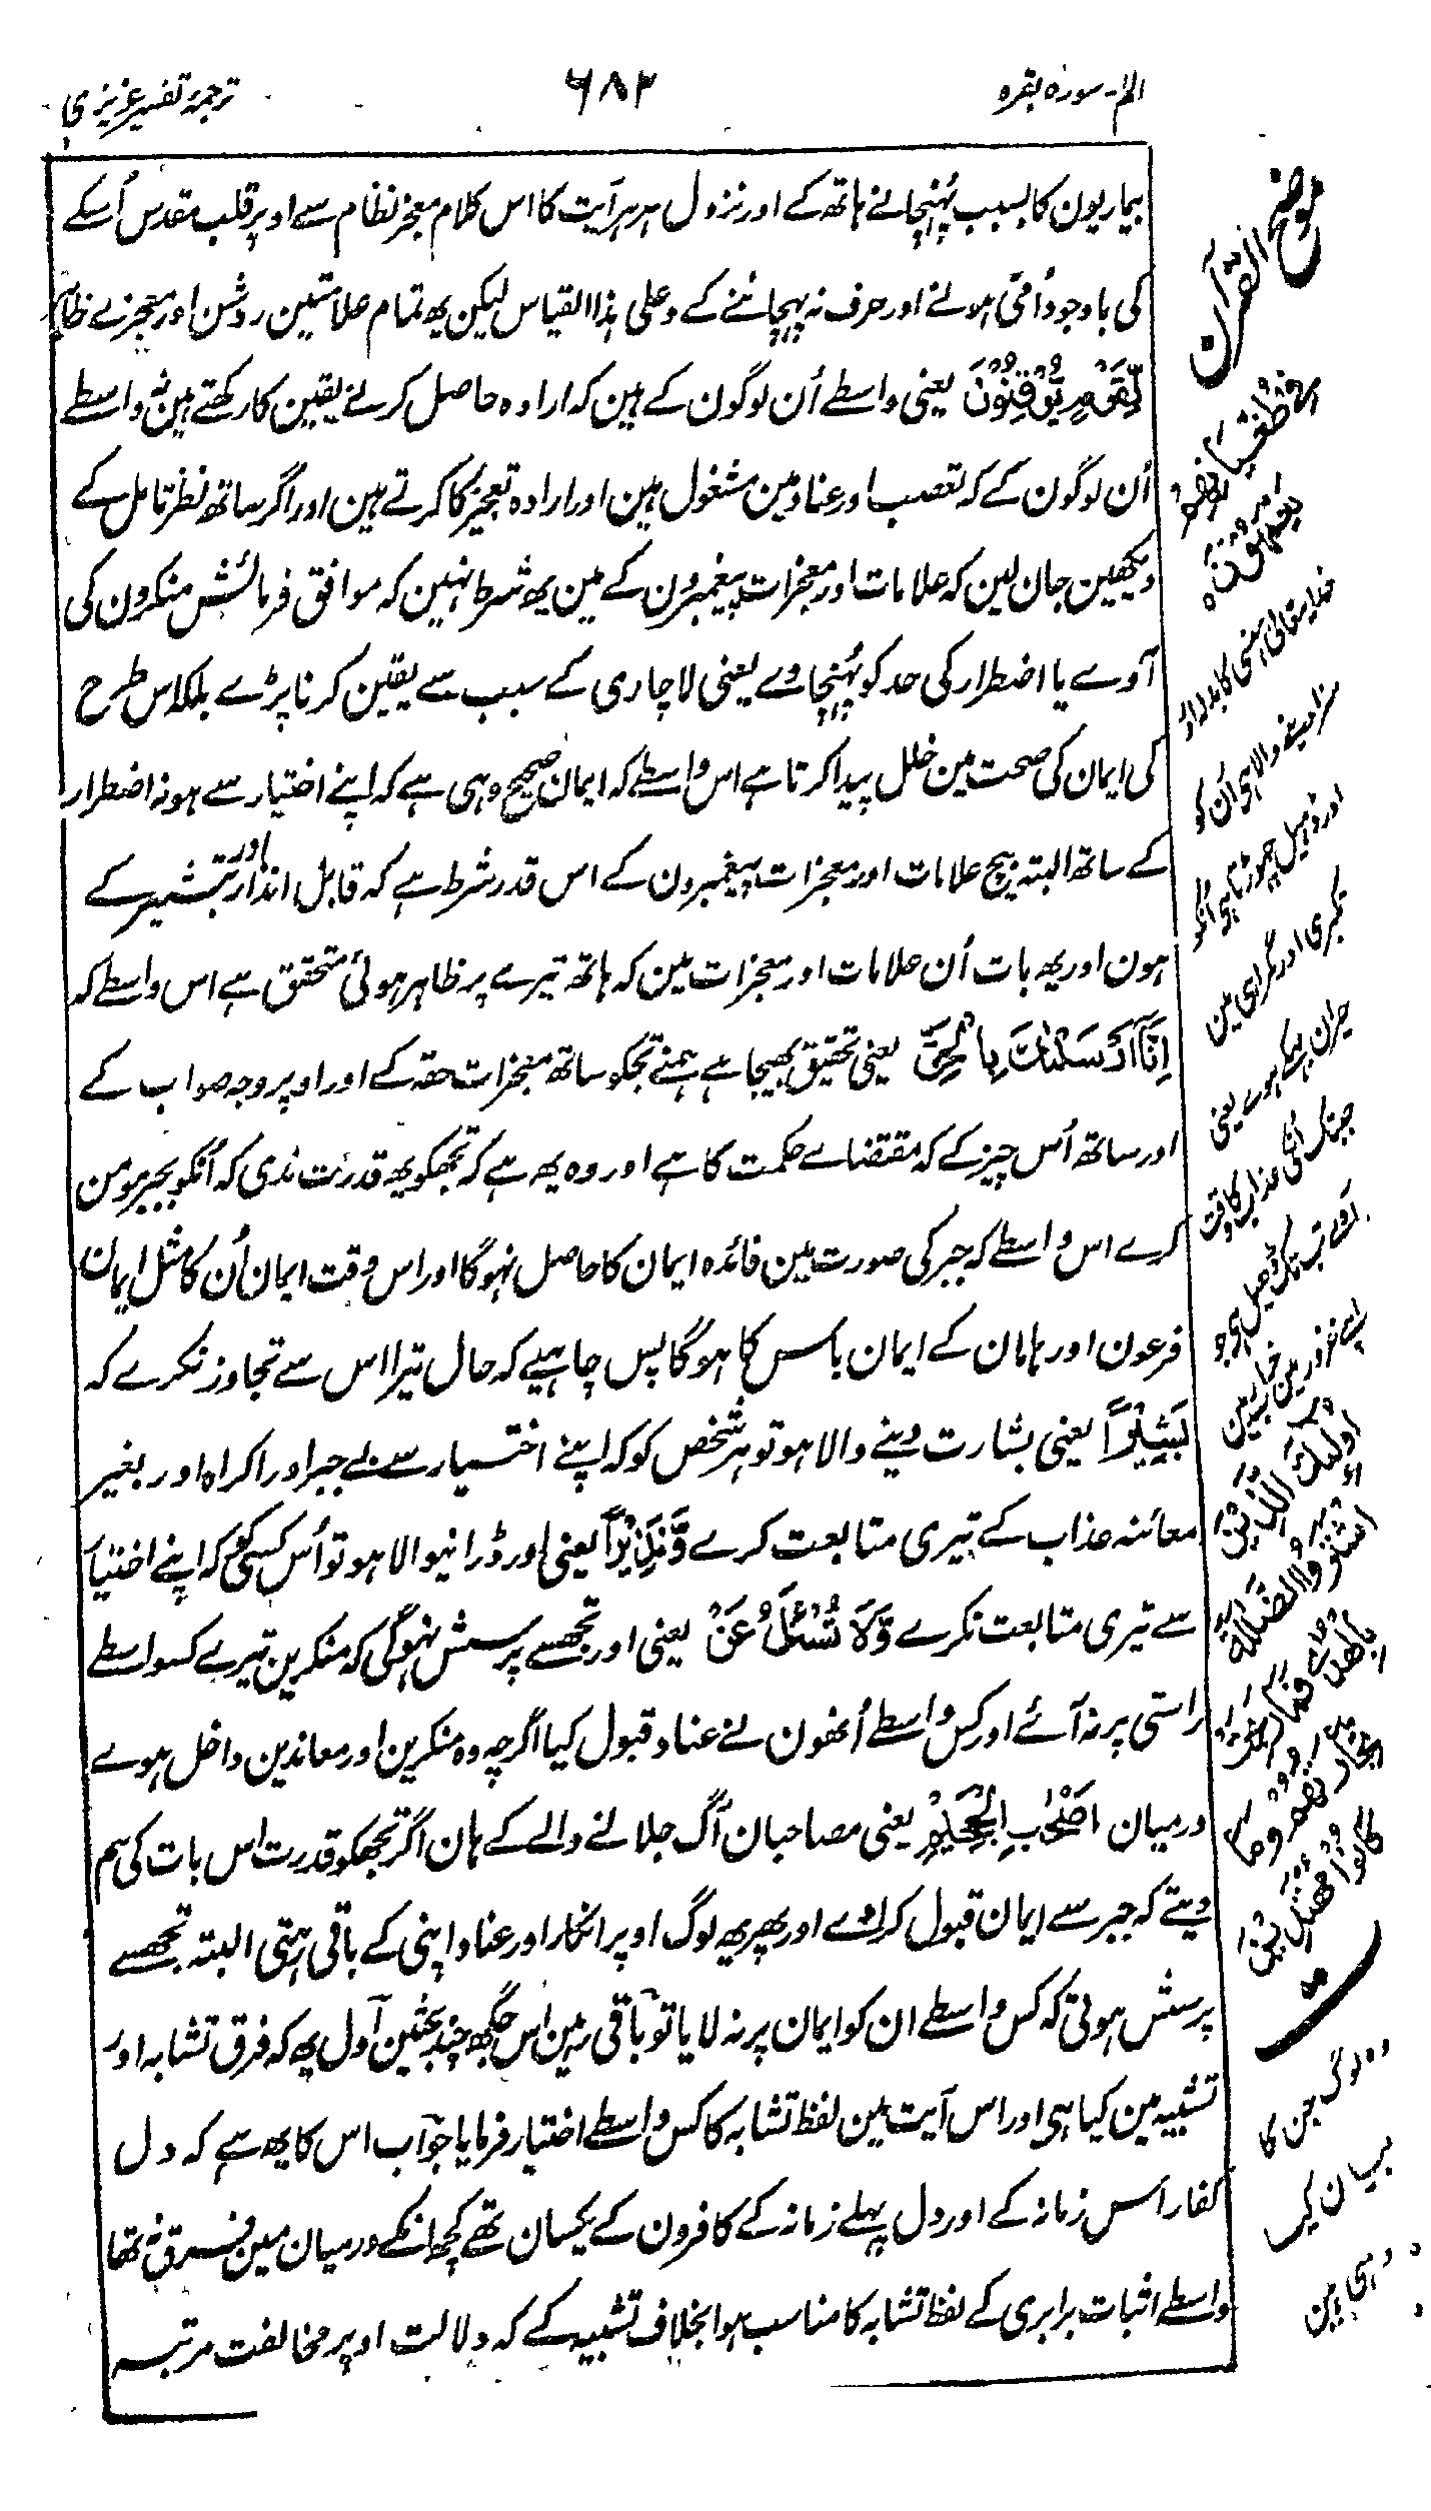 الم - سوره بقره
۶۸۲
ترجمۂ تفسیر عزیزی
بیماریون کا بسبب پُہنچانے ہاتھ کے اور نزول ہر ہر آیت کا اس کلام معجز نظام سے اوپر قلب مقدس اُسکے
کی باوجود اُمّی ہونے اور حرف نہ پہچاننے کے وعلی ہذا القیاس لیکن یہ تمام علامتین روشن اور معجزے ظاہر
لِّقَوْمٍ یُّوْقِنُوْنَ یعنی واسطے اُن لوگون کے ہین کہ ارادہ حاصل کرنے یقین کا رکھتے ہین نہ واسطے
اُن لوگون کے کہ تعصب اور عناد مین مشغول ہین اور ارادہ تعجیز کا کرتے ہین اور اگر ساتھ نظر تامل کے
دیکھین جان لین کہ علامات اور معجزات پیغمبرون کے مین یہ شرط نہین کہ موافق فرمائش منکرون کی
آوے یا اضطرار کی حد کو پُہنچاوے یعنی لاچاری کے سبب سے یقین کرنا پڑے بلکہ اس طرح
کی ایمان کی صحت مین خلل پیدا کرتا ہے اس واسطے کہ ایمان صحیح وہی ہے کہ اپنے اختیار سے ہو نہ اضطرار
کے ساتھ البتہ بیچ علامات اور معجزات پیغمبرون کے اس قدر شرط ہے کہ قابل انذار اور تبشیر کے
ہون اور یہ بات اُن علامات اور معجزات مین کہ ہاتھ تیرے پر ظاہر ہوئی متحقق ہے اس واسطے کہ
اِنَّآ اَرْسَلْنٰکَ بِالْحَقِّ یعنی تحقیق بھیجا ہے ہمنے تجکو ساتھ معجزات حقہ کے اور اوپر وجہ صواب کے
اور ساتھ اُس چیز کے کہ مقتضاے حکمت کا ہے اور وہ یہ ہے کہ تجھکو یہ قدرت ندی کہ اُنکو بجبر مومن
کرے اس واسطے کہ جبر کی صورت مین فائدہ ایمان کا حاصل نہوگا اور اس وقت ایمان اُن کا مثل ایمان
فرعون اور ہامان کے ایمان باس کا ہوگا پس چاہیے کہ حال تیرا اس سے تجاوز نکرے کہ
بَشِیْرًا یعنی بشارت دینے والا ہو تو ہر شخص کو کہ اپنے اختیار سے بے جبر اور اکراہ اور بغیر
معائنہ عذاب کے تیری متابعت کرے وَّنَذِیْرًا یعنی اور ڈرانیوالا ہو تو اُس کسی کو کہ اپنے اختیار
سے تیری متابعت نکرے وَّلَا تُسْئَلُ عَنْ یعنی اور تجھسے پرسش نہوگی کہ منکرین تیرے کسواسطے
راستی پر نہ آئے اور کس واسطے اُنھون نے عناد قبول کیا اگرچہ وہ منکرین اور معاندین داخل ہوے
درمیان اَصْحٰبِ الْجَحِیْمِ یعنی مصاحبان آگ جلانے والے کے ہان اگر تجھکو قدرت اس بات کی ہم
دیتے کہ جبر سے ایمان قبول کراوے اور پھر یہ لوگ اوپر انکار اور عناد اپنی کے باقی رہتی البتہ تجھسے
پرسش ہوتی کہ کس واسطے ان کو ایمان پر نہ لایا تو باقی رہین اس جگھ چند بحثین اول یہ کہ فرق تشابہ اور
تشبیہ مین کیا ہی اور اس آیت مین لفظ تشابہ کا کس واسطے اختیار فرمایا جواب اس کا یہ ہے کہ دل
کفار اُس زمانہ کے اور دل پہلے زمانہ کے کافرون کے یکسان تھے کچھ اُنکے درمیان مین فرق نہ تھا
واسطے اثبات برابری کے لفظ تشابہ کا مناسب ہوا بخلاف تشبیہ کے کہ دلالت اوپر مخالفت مرتبہ
موضح القرآن
طُغْیَانِهِمْ
یَعْمَهُوْنَ
خداے تعالیٰ ہنسی کا بدلا اور
سزا دینے والا ہی اُن کو
اور ڈھیل چھوڑتا ہی اُنکو
اور گمراہی مین
حیران بہکے ہوے یعنی
اُولٰٓئِکَ الَّذِیْنَ
اشْتَرَوُا الضَّلٰلَةَ
بِالْهُدٰی فَمَا رَبِحَتْ
تِّجَارَتُهُمْ وَمَا
کَانُوْا مُهْتَدِیْنَ
لوگ جن کا
بیان کیا
وہی ہین